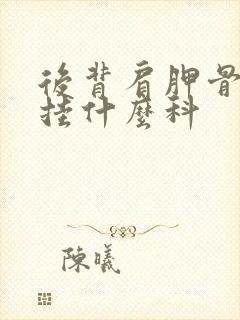 後背肩胛骨
挂什麼科
陳曦